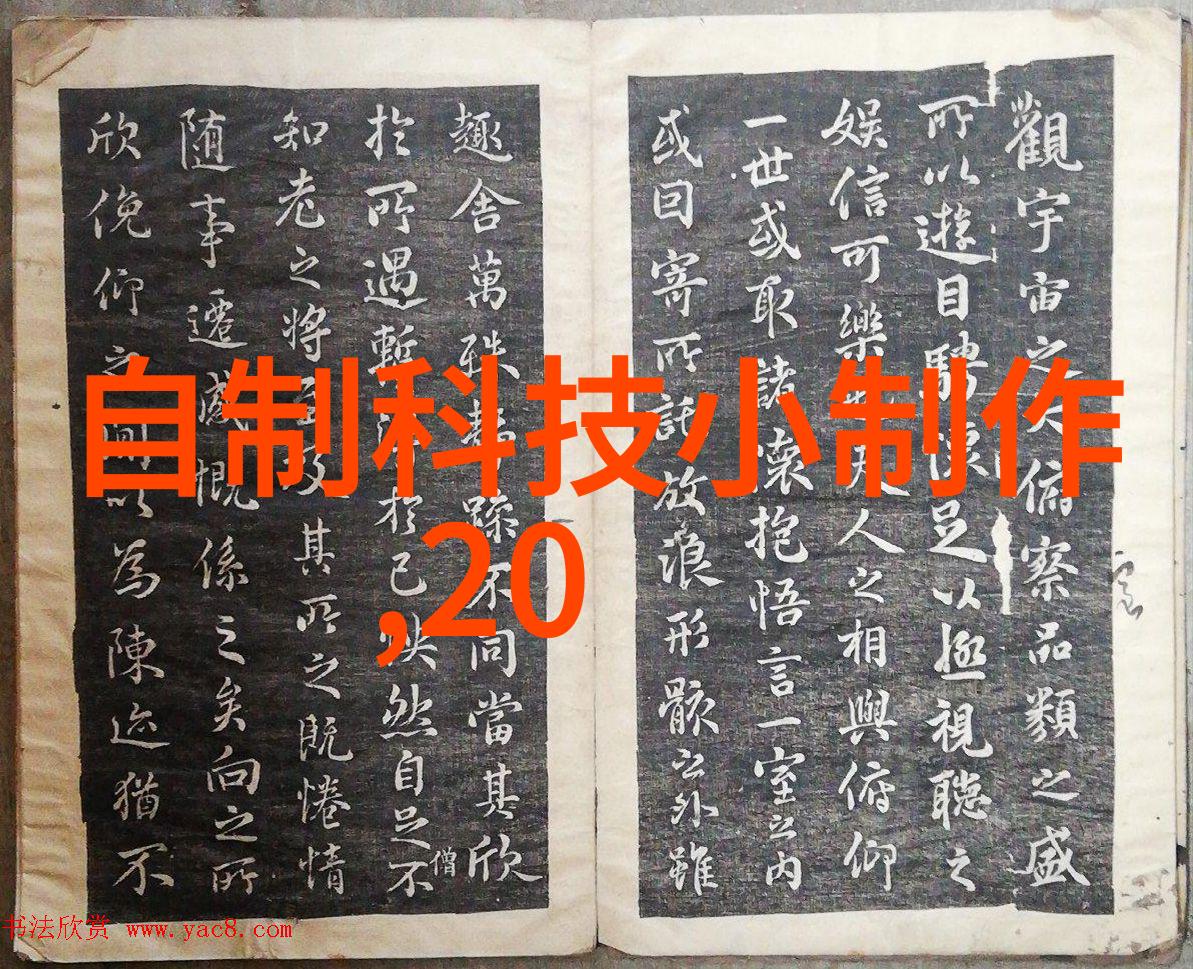 觀宇宙之大俯察品類之盛
所以遊目騁懷足以極視聽之
娛信可樂也夫人之相與俯仰
一世或取諸懷抱悟言一室之內
或因寄所託放浪形骸之外雖
趣舍萬殊靜躁不同當其欣
僧
於所遇暫得於己怏然自足不
知老之將至及其所之既惓情
随事遷感慨係之矣向之所
欣俛仰之間以為陳迹猶不
自制科技小制作
,20
书法欣赏 www.yac8.com